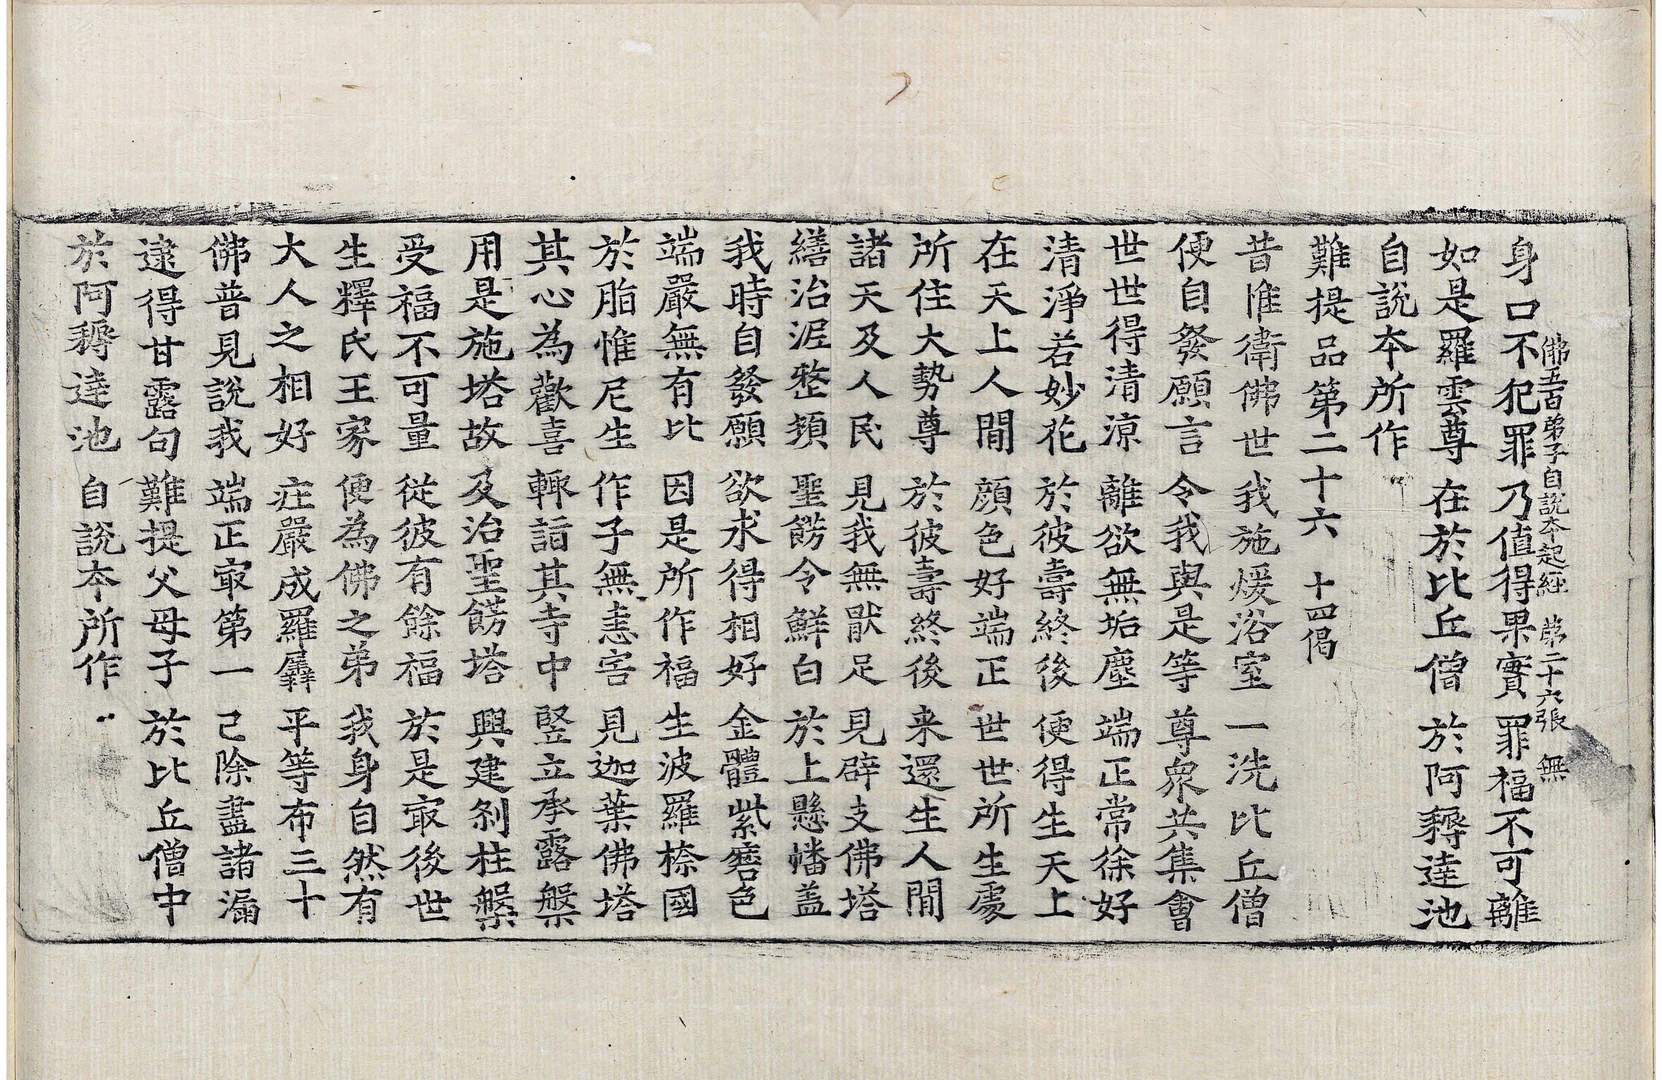 佛五百弟子自說本起經 第二十六張 無
身口不犯罪 乃值得果實 罪福不可離
如是羅雲尊 在於比丘僧 於阿耨達池
自說本所作
難提品第二十六 十四偈
昔惟衛佛世 我施煖浴室 一洗比丘僧
便自發願言 令我與是等 尊衆共集會
世世得清涼 離欲無垢塵 端正常徐好
清淨若妙花 於彼壽終後 便得生天上
在天上人間 顔色好端正 世世所生處
所住大勢尊 於彼壽終後 来還生人間
諸天及人民 見我無猒足 見辟支佛塔
繕治泥整頓 聖餝令鮮白 於上懸幡蓋
我時自發願 欲求得相好 金體紫磨色
端嚴無有比 因是所作福 生波羅㮈國
於脂惟尼生 作子無恚害 見迦葉佛塔
其心為歡喜 輙詣其寺中 竪立承露槃
用是施塔故 及治聖餝塔 興建刹柱槃
受福不可量 從彼有餘福 於是㝡後世
生釋氏王家 便為佛之弟 我身自然有
大人之相好 莊嚴成羅羼 平等布三十
佛普見說我 端正㝡第一 已除盡諸漏
逮得甘露句 難提父母子 於比丘僧中
於阿耨達池 自說本所作